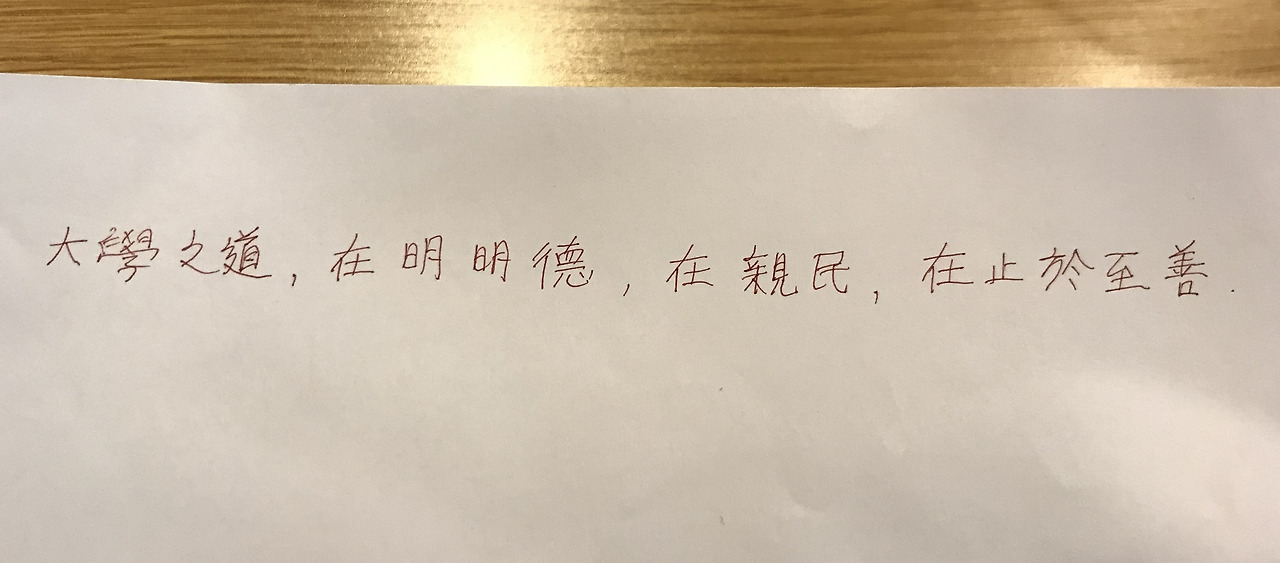 大學之道,在明明德,在親民,在止於至善.